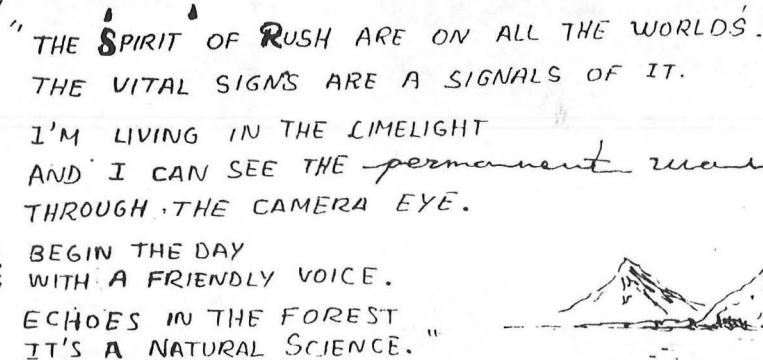 "THE 'SPIRIT' OF RUSH ARE ON ALL THE WORLDS.
THE VITAL SIGNS ARE A SIGNALS OF IT.
I'M LIVING IN THE LIMELIGHT
AND I CAN SEE THE permanent
THROUGH THE CAMERA EYE.
BEGIN THE DAY
WITH A FRIENDLY VOICE.
ECHOES IN THE FOREST
IT'S A NATURAL SCIENCE."